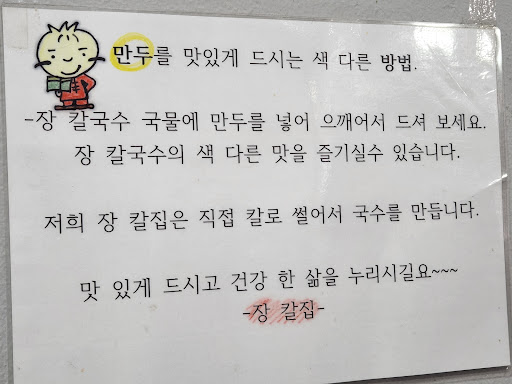 만두를 맛있게 드시는 색 다른 방법.
-장 칼국수 국물에 만두를 넣어 으깨어서 드셔 보세요.
장 칼국수의 색 다른 맛을 즐기실수 있습니다.
저희 장 칼집은 직접 칼로 썰어서 국수를 만듭니다.
맛 있게 드시고 건강 한 삶을 누리시길요~~~
-장 칼집-